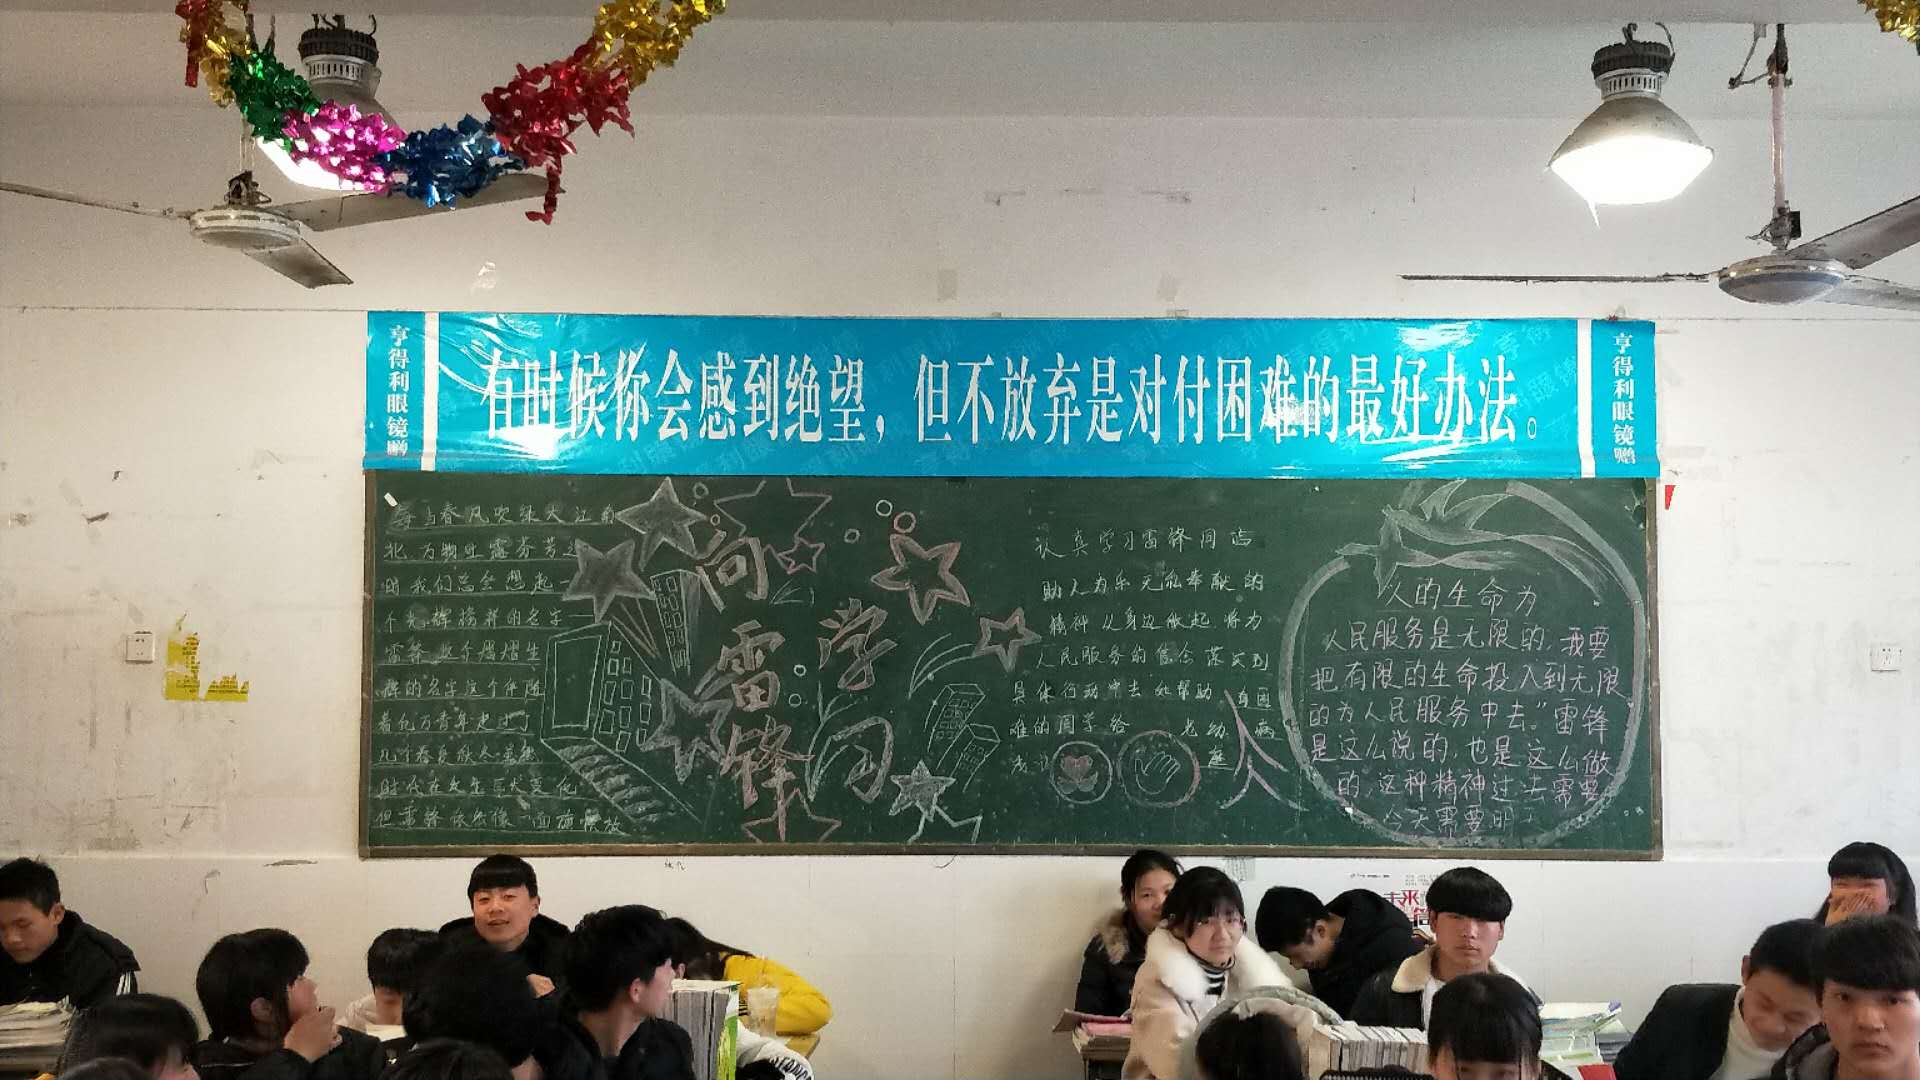 亨得利眼镜赠
有时候你会感到绝望，但不放弃是对付困难的最好办法。
亨得利眼镜赠
每当春风吹绿大江南
北，万物吐露芬芳之
时我们总会想起一
个光辉榜样的名字一
雷锋
辉的名字这个伴随
着亿万青年走过了
几个春夏秋冬
时代在发生巨大变化
但雷锋依然像一面旗帜
向
雷
锋
同
学
认真学习雷锋同志
助人为乐无私奉献的
精神从身边做起将为
人民服务的信念落实到
具体行动中去 帮助 有困
难的同学给 老幼 病
人的生命为
人民服务是无限的，我要
把有限的生命投入到无限
的为人民服务中去。”雷锋
是这么说的，也是这么做
的，这种精神过去需要
今天需要明
未来